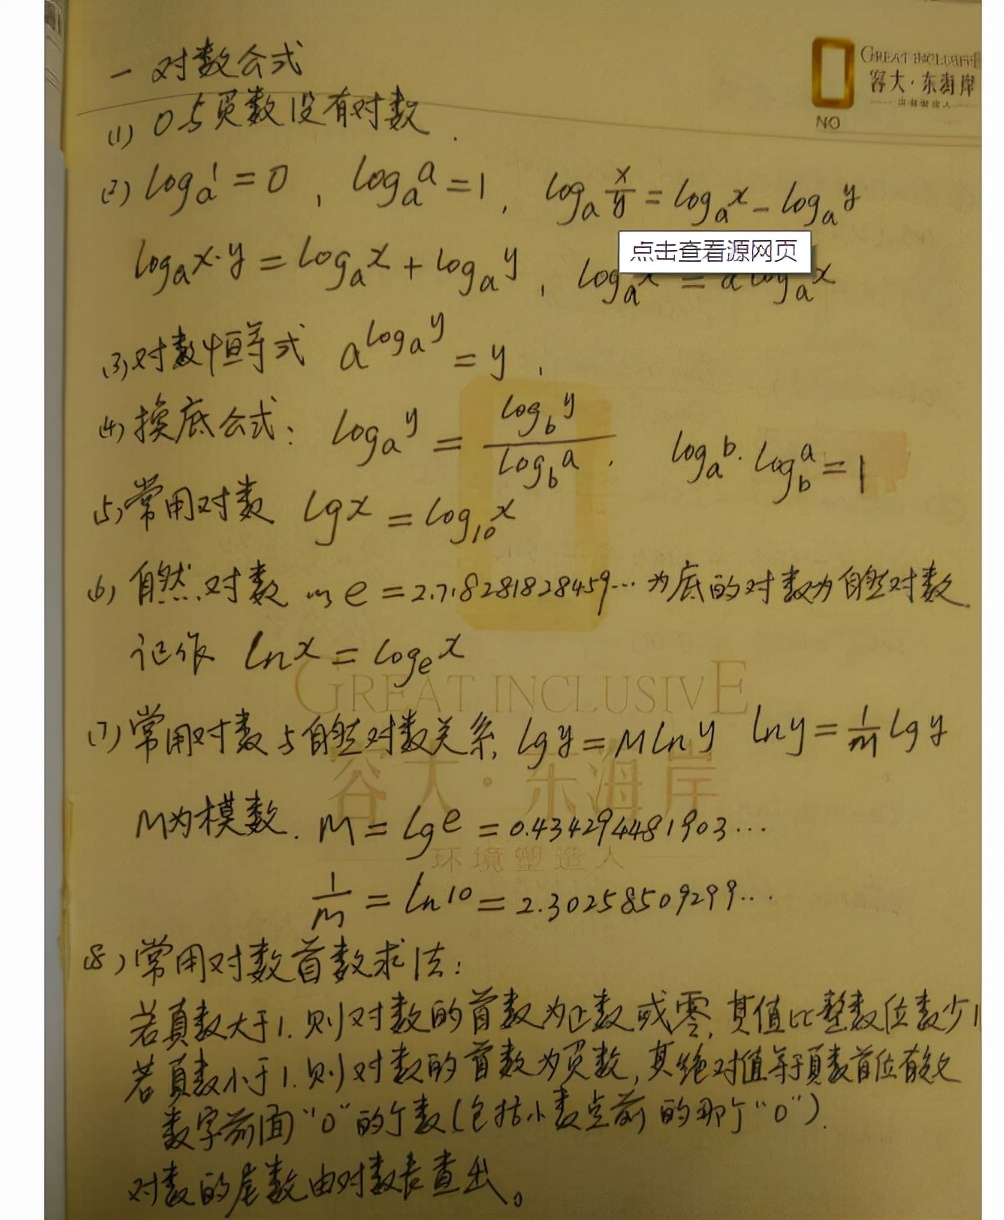 GREAT INCLUSIVE
容大·东海岸
NO
一 对数公式
(1) 0与负数没有对数.
(2) logₐ1 = 0, logₐa = 1, logₐ x/y = logₐx - logₐy
点击查看源网页
logₐx·y = logₐx + logₐy, logₐx = a logₐx
(3) 对数恒等式 a^(logₐy) = y,
(4) 换底公式: logₐy = log_b y / log_b a. logₐb · log_b a = 1
(5) 常用对数 lgx = log₁₀x
(6) 自然对数 以 e = 2.718281828459… 为底的对数为自然对数.
记作 lnx = logₑx
GREAT INCLUSIVE
(7) 常用对数与自然对数关系, lgy = M lny lny = 1/M lgy
容大·东海岸
M为模数. M = lge = 0.434294481903…
环境塑造人
1/M = ln10 = 2.30258509299…
(8) 常用对数首数求法:
若真数大于1.则对数的首数为正数或零,其值比整数位数少1
若真数小于1.则对数的首数为负数,其绝对值等于真数首位有效
数字前面"0"的个数(包括小数点前的那个"0").
对数的尾数由对数表查出。